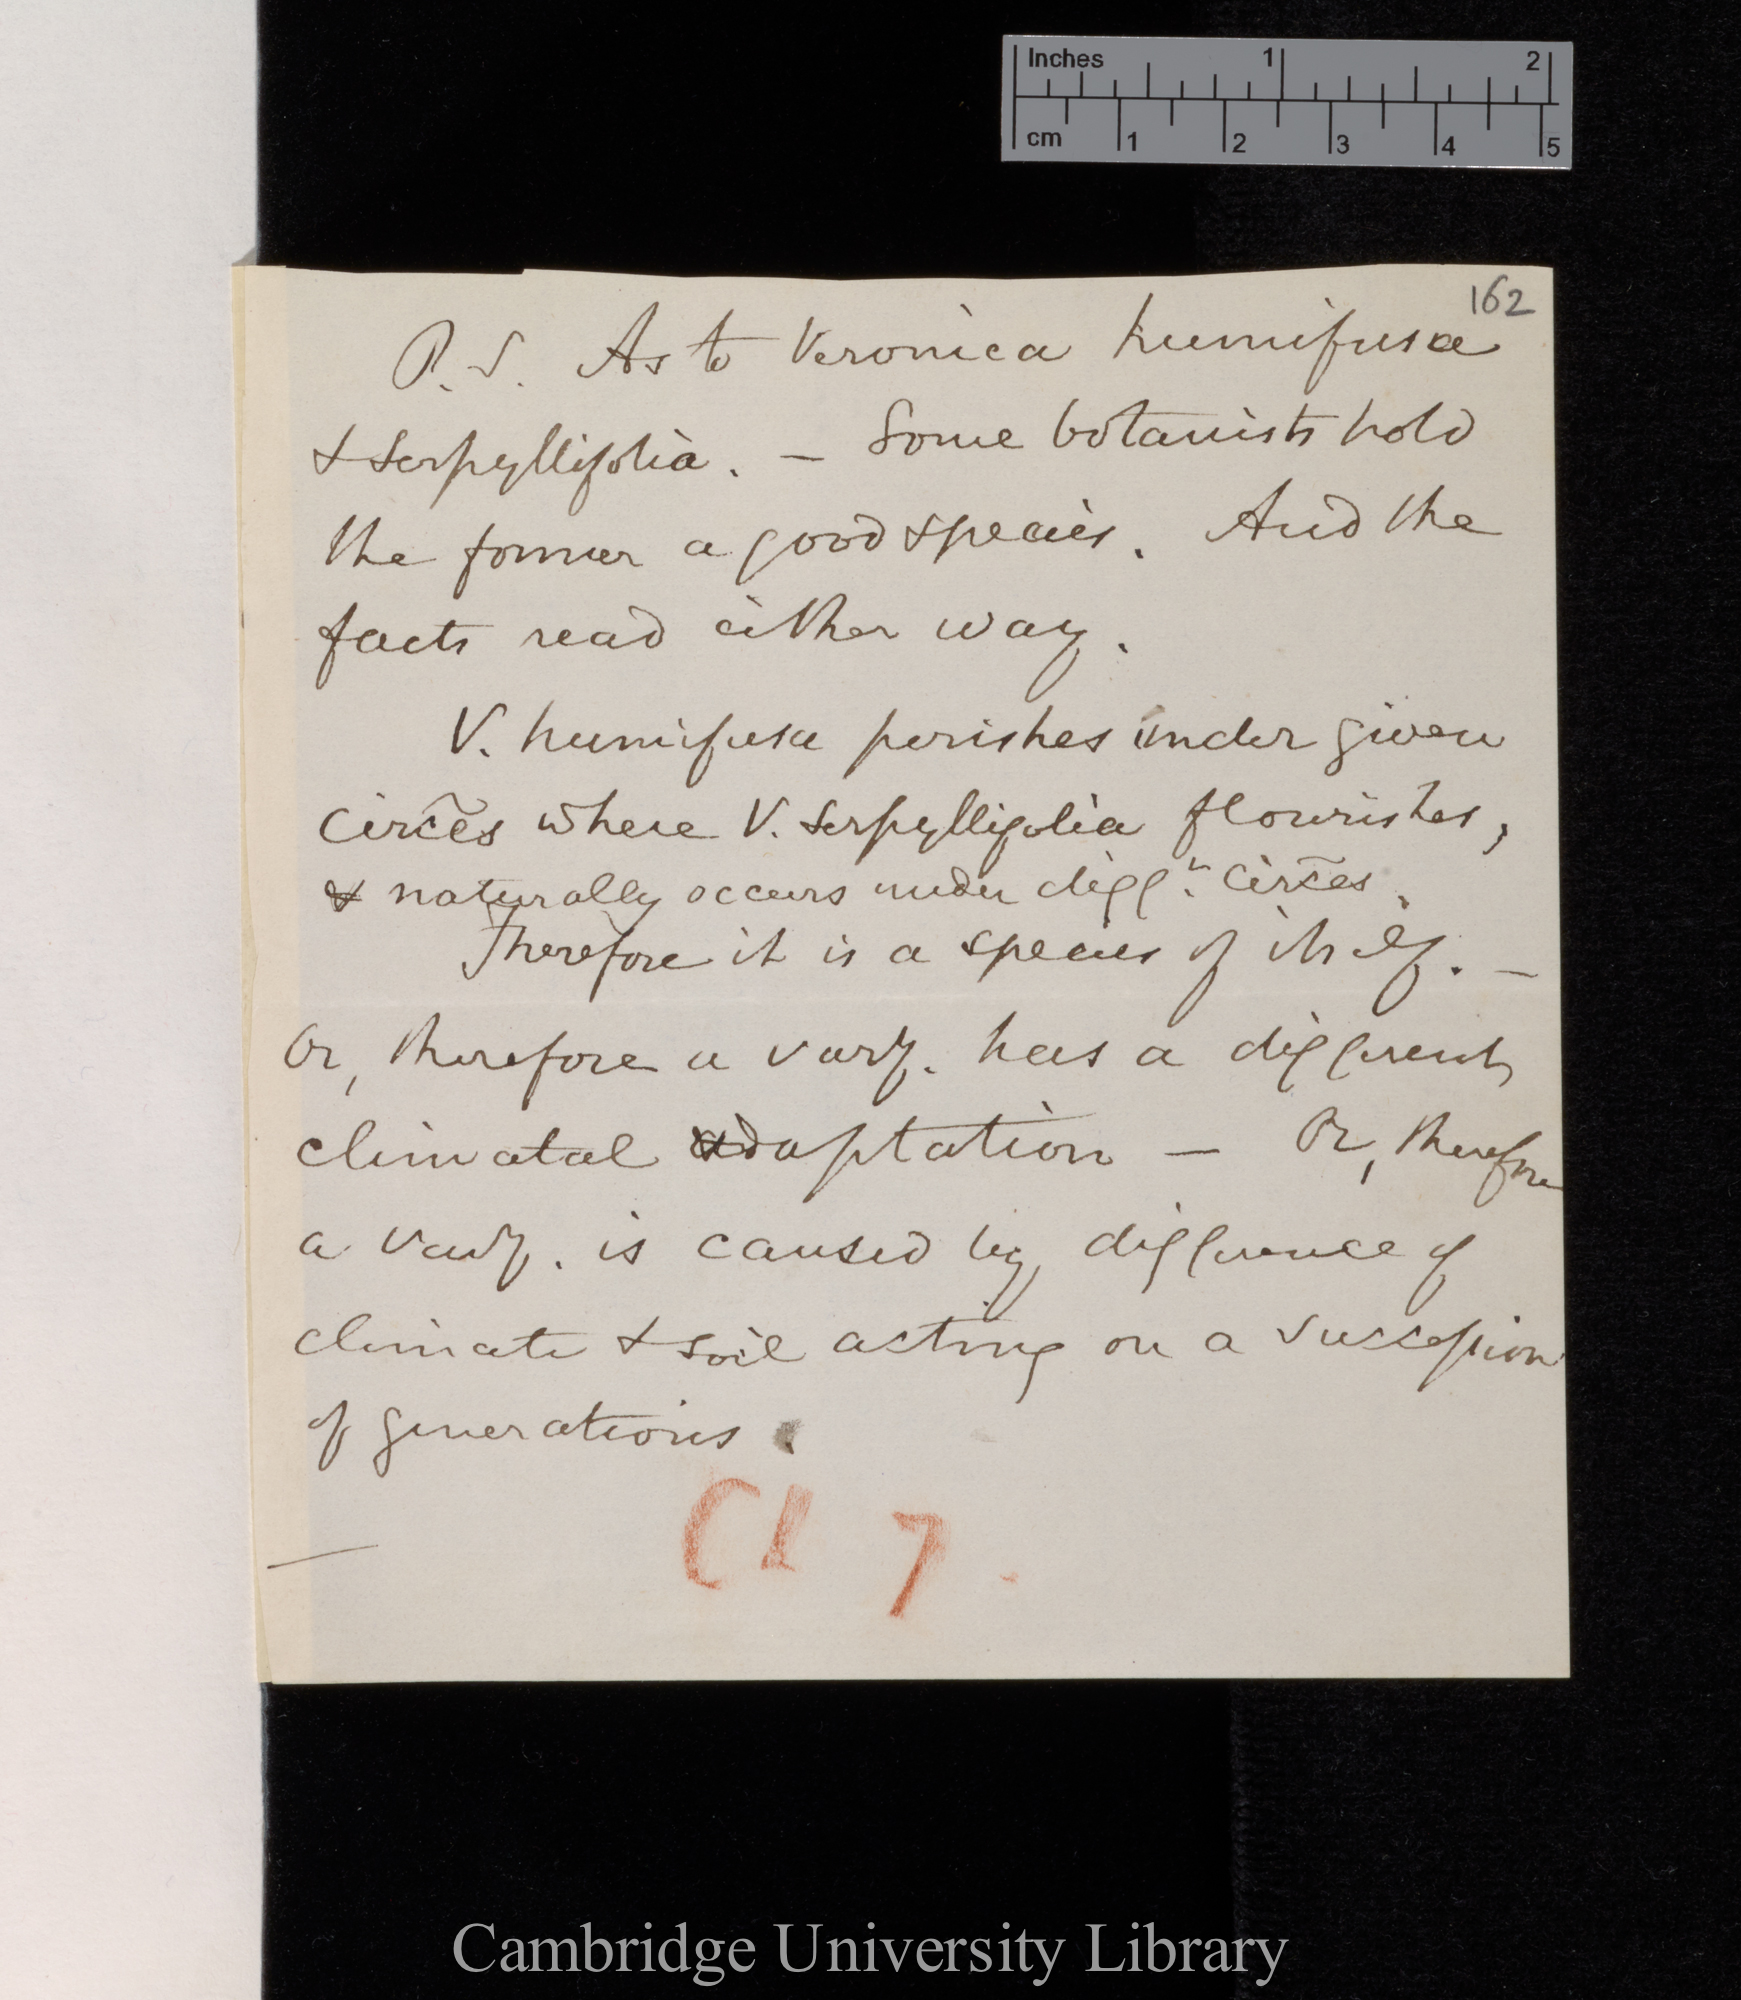 Inches 1 2
cm 1 2 3 4 5
162
P.S. As to Veronica humifusa
& serpyllifolia. — Some botanists hold
the former a good species. And the
facts read either way.
V. humifusa perishes under given
circ̃es where V. serpyllifolia flourishes,
& naturally occurs under diff.t circ̃es.
Therefore it is a species of itself. —
Or, therefore a varỹ. has a different
climatal adaptation — Or, therefore
a varỹ. is caused by difference of
climate & soil acting on a succession
of generations.
Ch 7.
Cambridge University Library